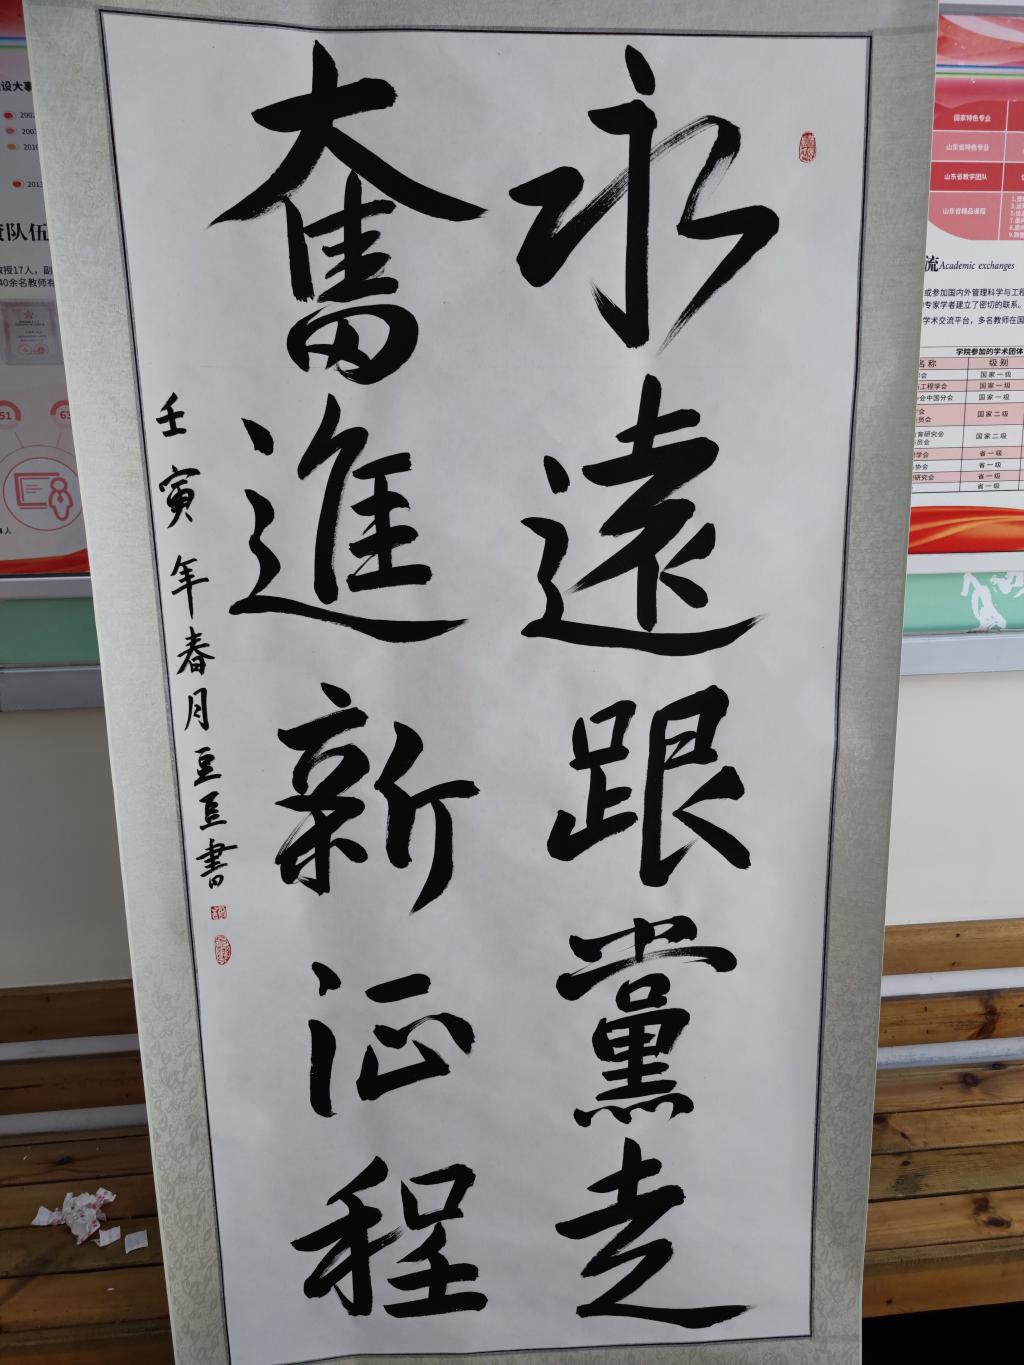 永遠跟黨走
奮進新征程
壬寅年春月豆豆書
设大事
2002
2003
2010
2013
资队伍
教授17人，副
40余名教师有
51
63
人
国家特色专业
山东省特色专业
山东省教学团队
山东省精品课程
流 Academic exchanges
或参加国内外管理科学与工程
专家学者建立了密切的联系。
学术交流平台，多名教师在国
学院参加的学术团体
名称 级别
学会 国家一级
工程学会 国家一级
协会中国分会 国家一级
学会
委员会 国家二级
教育研究会
委员会 国家二级
学会 省一级
协会 省一级
研究会 省一级
省一级